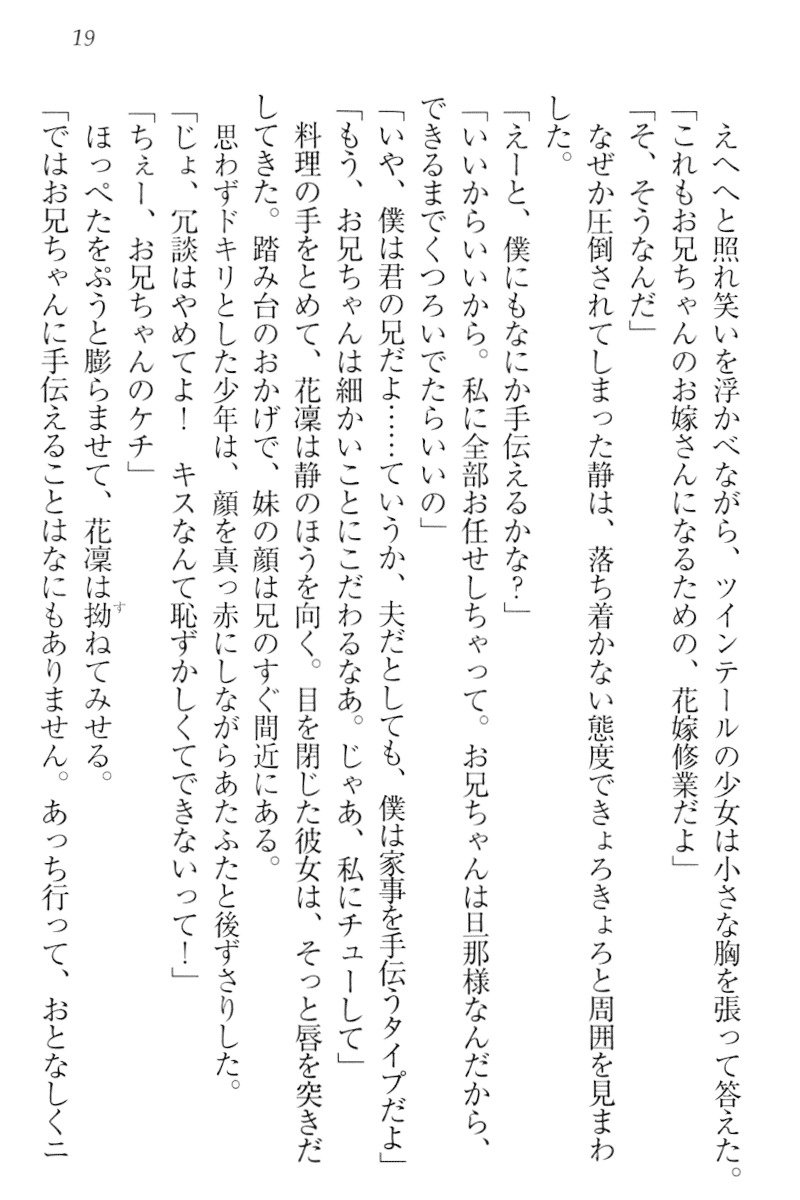 19
えへへと照れ笑いを浮かべながら、ツインテールの少女は小さな胸を張って答えた。
「これもお兄ちゃんのお嫁さんになるための、花嫁修業だよ」
「そ、そうなんだ」
なぜか圧倒されてしまった静は、落ち着かない態度できょろきょろと周囲を見まわ
した。
「えーと、僕にもなにか手伝えるかな?」
「いいからいいから。私に全部お任せしちゃって。お兄ちゃんは旦那様なんだから、
できるまでくつろいでたらいいの」
「いや、僕は君の兄だよ……ていうか、夫だとしても、僕は家事を手伝うタイプだよ」
「もう、お兄ちゃんは細かいことにこだわるなあ。じゃあ、私にチューして」
料理の手をとめて、花凜は静のほうを向く。目を閉じた彼女は、そっと唇を突きだ
してきた。踏み台のおかげで、妹の顔は兄のすぐ間近にある。
思わずドキリとした少年は、顔を真っ赤にしながらあたふたと後ずさりした。
「じょ、冗談はやめてよ! キスなんて恥ずかしくてできないって!」
「ちぇー、お兄ちゃんのケチ」
ほっぺたをぷうと膨らませて、花凜は拗すねてみせる。
「ではお兄ちゃんに手伝えることはなにもありません。あっち行って、おとなしくニ